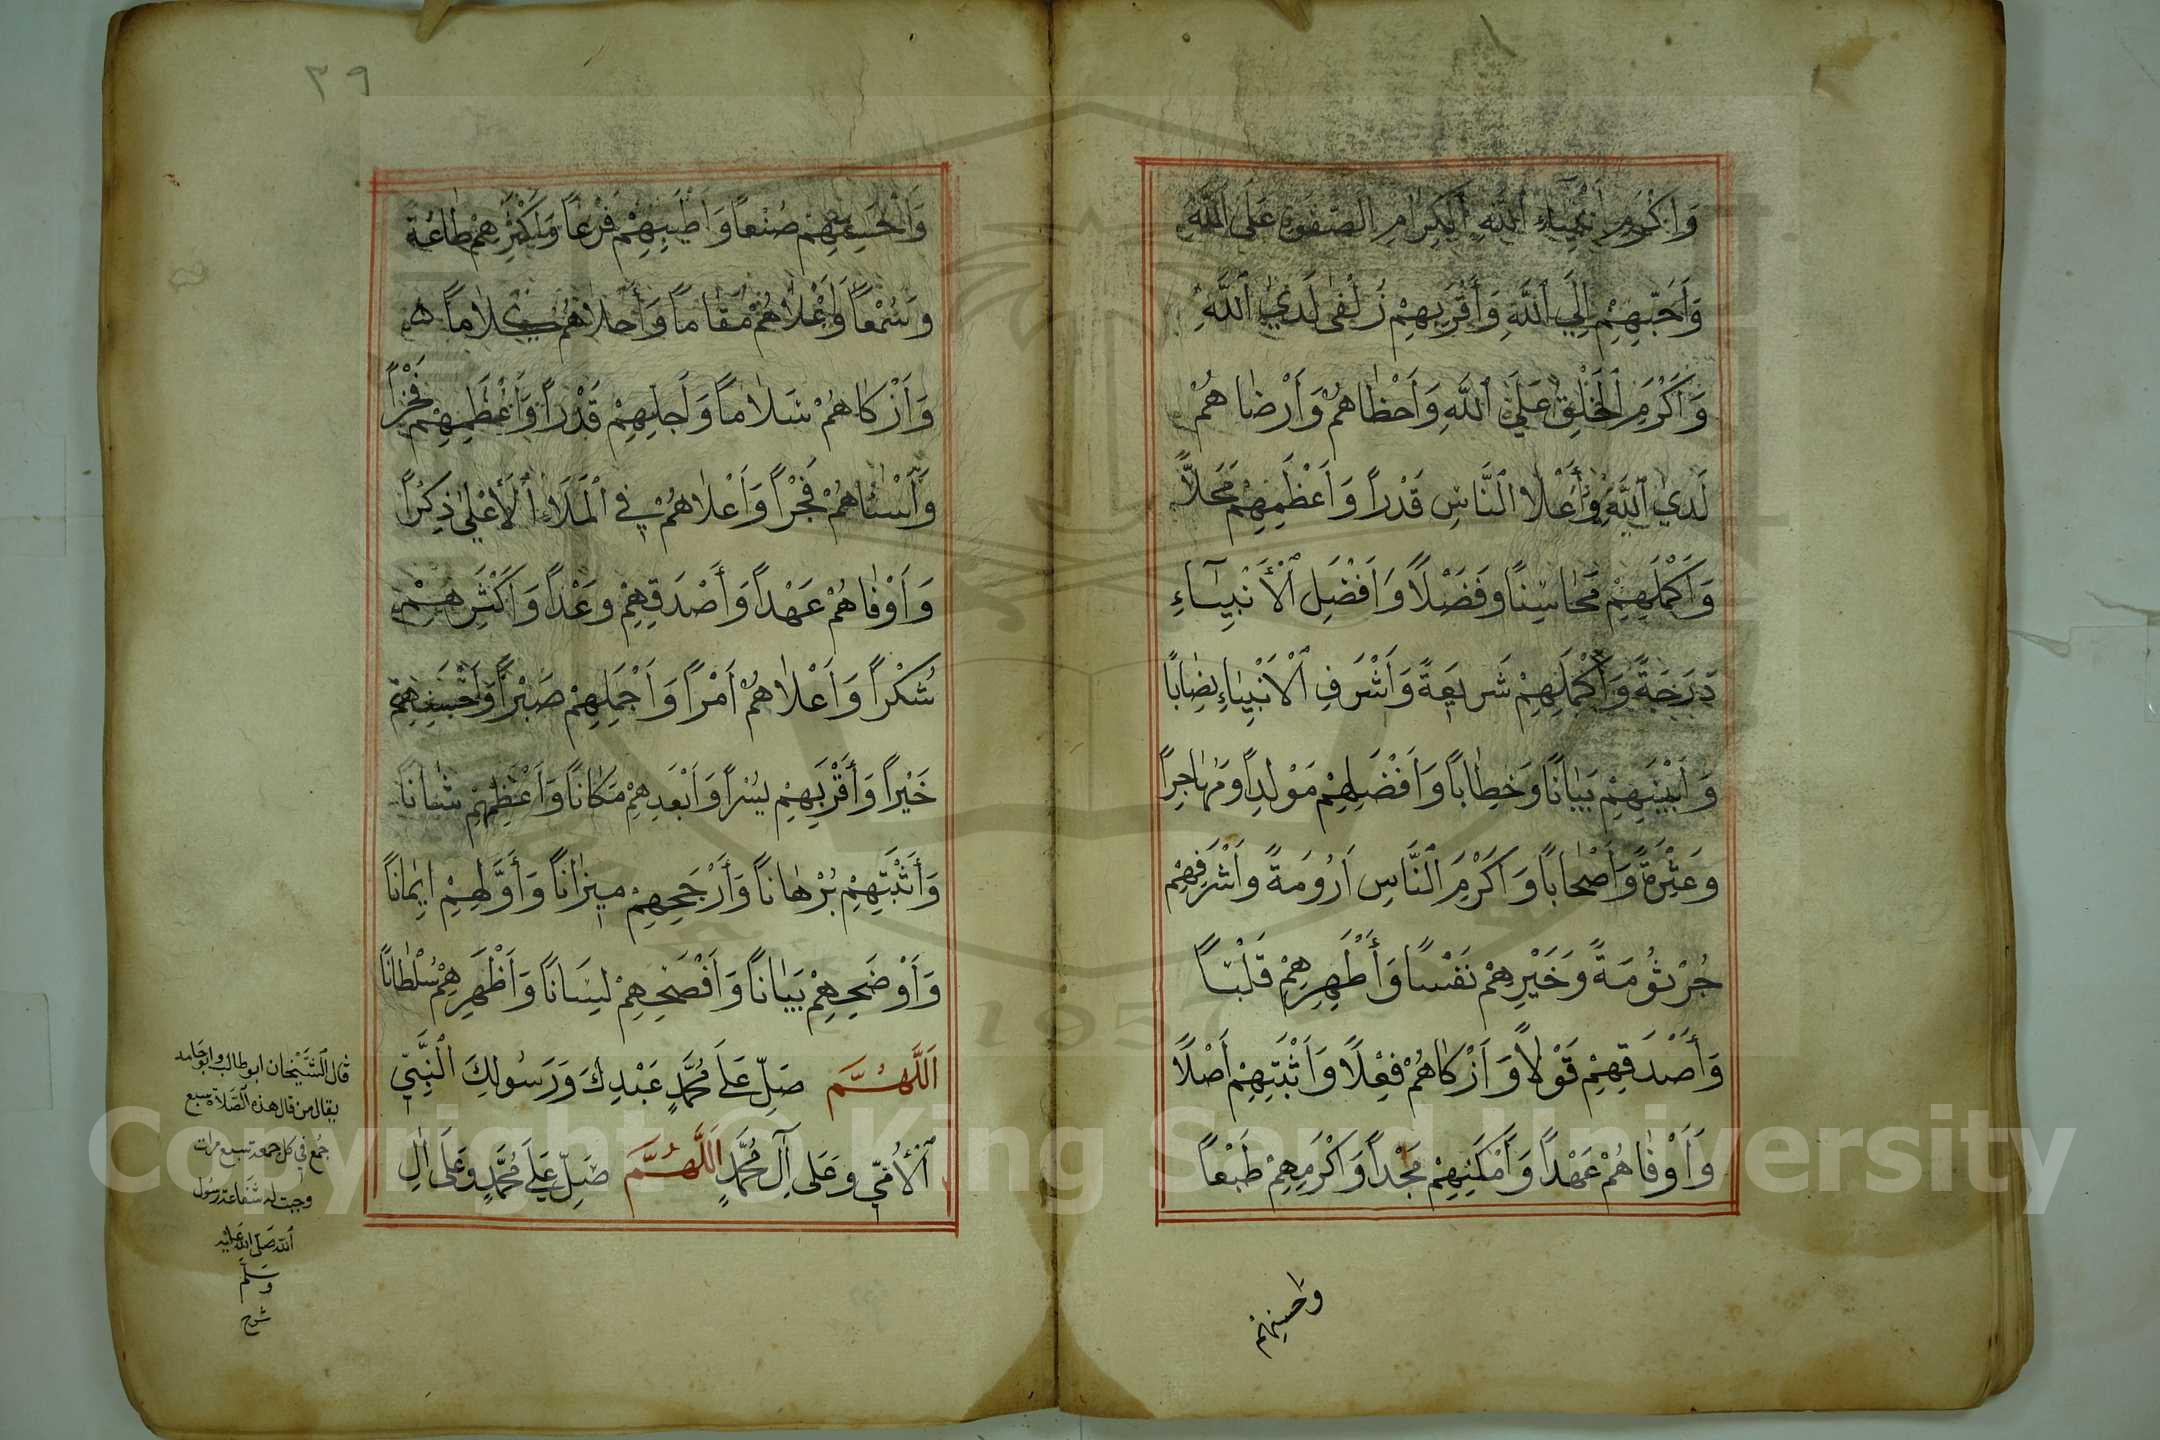 وَاَكْرَمِ اَنْبِيَاءِ اللّٰهِ الْكِرَامِ الصَّفْوَةِ عَلَى اللّٰهِ
وَاَحَبِّهِمْ اِلَى اللّٰهِ وَاَقْرَبِهِمْ زُلْفٰى لَدَى اللّٰهِ
وَاَكْرَمِ الْخَلْقِ عَلَى اللّٰهِ وَاَحْظَاهُمْ وَاَرْضَاهُمْ
لَدَى اللّٰهِ وَاَعْلَا النَّاسِ قَدْراً وَاَعْظَمِهِمْ مَحَلاًّ
وَاَكْمَلِهِمْ مَحَاسِناً وَفَضْلاً وَاَفْضَلِ الْاَنْبِيَاءِ
دَرَجَةً وَاَكْمَلِهِمْ شَرِيعَةً وَاَشْرَفِ الْاَنْبِيَاءِ نِصَاباً
وَاَبْيَنِهِمْ بَيَاناً وَخِطَاباً وَاَفْضَلِهِمْ مَوْلِداً وَمُهَاجَراً
وَعِتْرَةً وَاَصْحَاباً وَاَكْرَمِ النَّاسِ اَرُومَةً وَاَشْرَفِهِمْ
جُرْثُومَةً وَخَيْرِهِمْ نَفْساً وَاَطْهَرِهِمْ قَلْباً
وَاَصْدَقِهِمْ قَوْلاً وَاَزْكَاهُمْ فِعْلاً وَاَثْبَتِهِمْ اَصْلاً
وَاَوْفَاهُمْ عَهْداً وَاَمْكَنِهِمْ مَجْداً وَاَكْرَمِهِمْ طَبْعاً
واحسنهم
٣٩
وَاَحْسَنِهِمْ صُنْعاً وَاَطْيَبِهِمْ فَرْعاً وَاَكْثَرِهِمْ طَاعَةً
وَسَمْعاً وَاَعْلَاهُمْ مَقَاماً وَاَحْلَاهُمْ كَلَاماً
وَاَزْكَاهُمْ سَلَاماً وَاَجَلِّهِمْ قَدْراً وَاَعْظَمِهِمْ فَخْراً
وَاَسْنَاهُمْ فَجْراً وَاَعْلَاهُمْ فِي الْمَلَاءِ الْاَعْلٰى ذِكْراً
وَاَوْفَاهُمْ عَهْداً وَاَصْدَقِهِمْ وَعْداً وَاَكْثَرِهُمْ
شُكْراً وَاَعْلَاهُمْ اَمْراً وَاَجْمَلِهِمْ صَبْراً وَاَحْسَنِهِمْ
خَيْراً وَاَقْرَبِهِمْ يُسْراً وَاَبْعَدِهِمْ مَكَاناً وَاَعْظَمِهِمْ شَاناً
وَاَثْبَتِهِمْ بُرْهَاناً وَاَرْجَحِهِمْ مِيزَاناً وَاَوَّلِهِمْ اِيمَاناً
وَاَوْضَحِهِمْ بَيَاناً وَاَفْصَحِهِمْ لِسَاناً وَاَظْهَرِهِمْ سُلْطَاناً
اَللّٰهُمَّ صَلِّ عَلَى مُحَمَّدٍ عَبْدِكَ وَرَسُولِكَ النَّبِيِّ
الْاُمِّيِّ وَعَلَى آلِ مُحَمَّدٍ اَللّٰهُمَّ صَلِّ عَلَى مُحَمَّدٍ وَعَلَى اٰلِ
قال الشيخان ابو طالب وابو حامد
يقال من قال هذه الصلاة سبع
جمع في كل جمعة سبع مرات
وجبت له شفاعة رسول
الله صلى الله عليه
وسلم
شرح
1957
Copyright © King Saud University